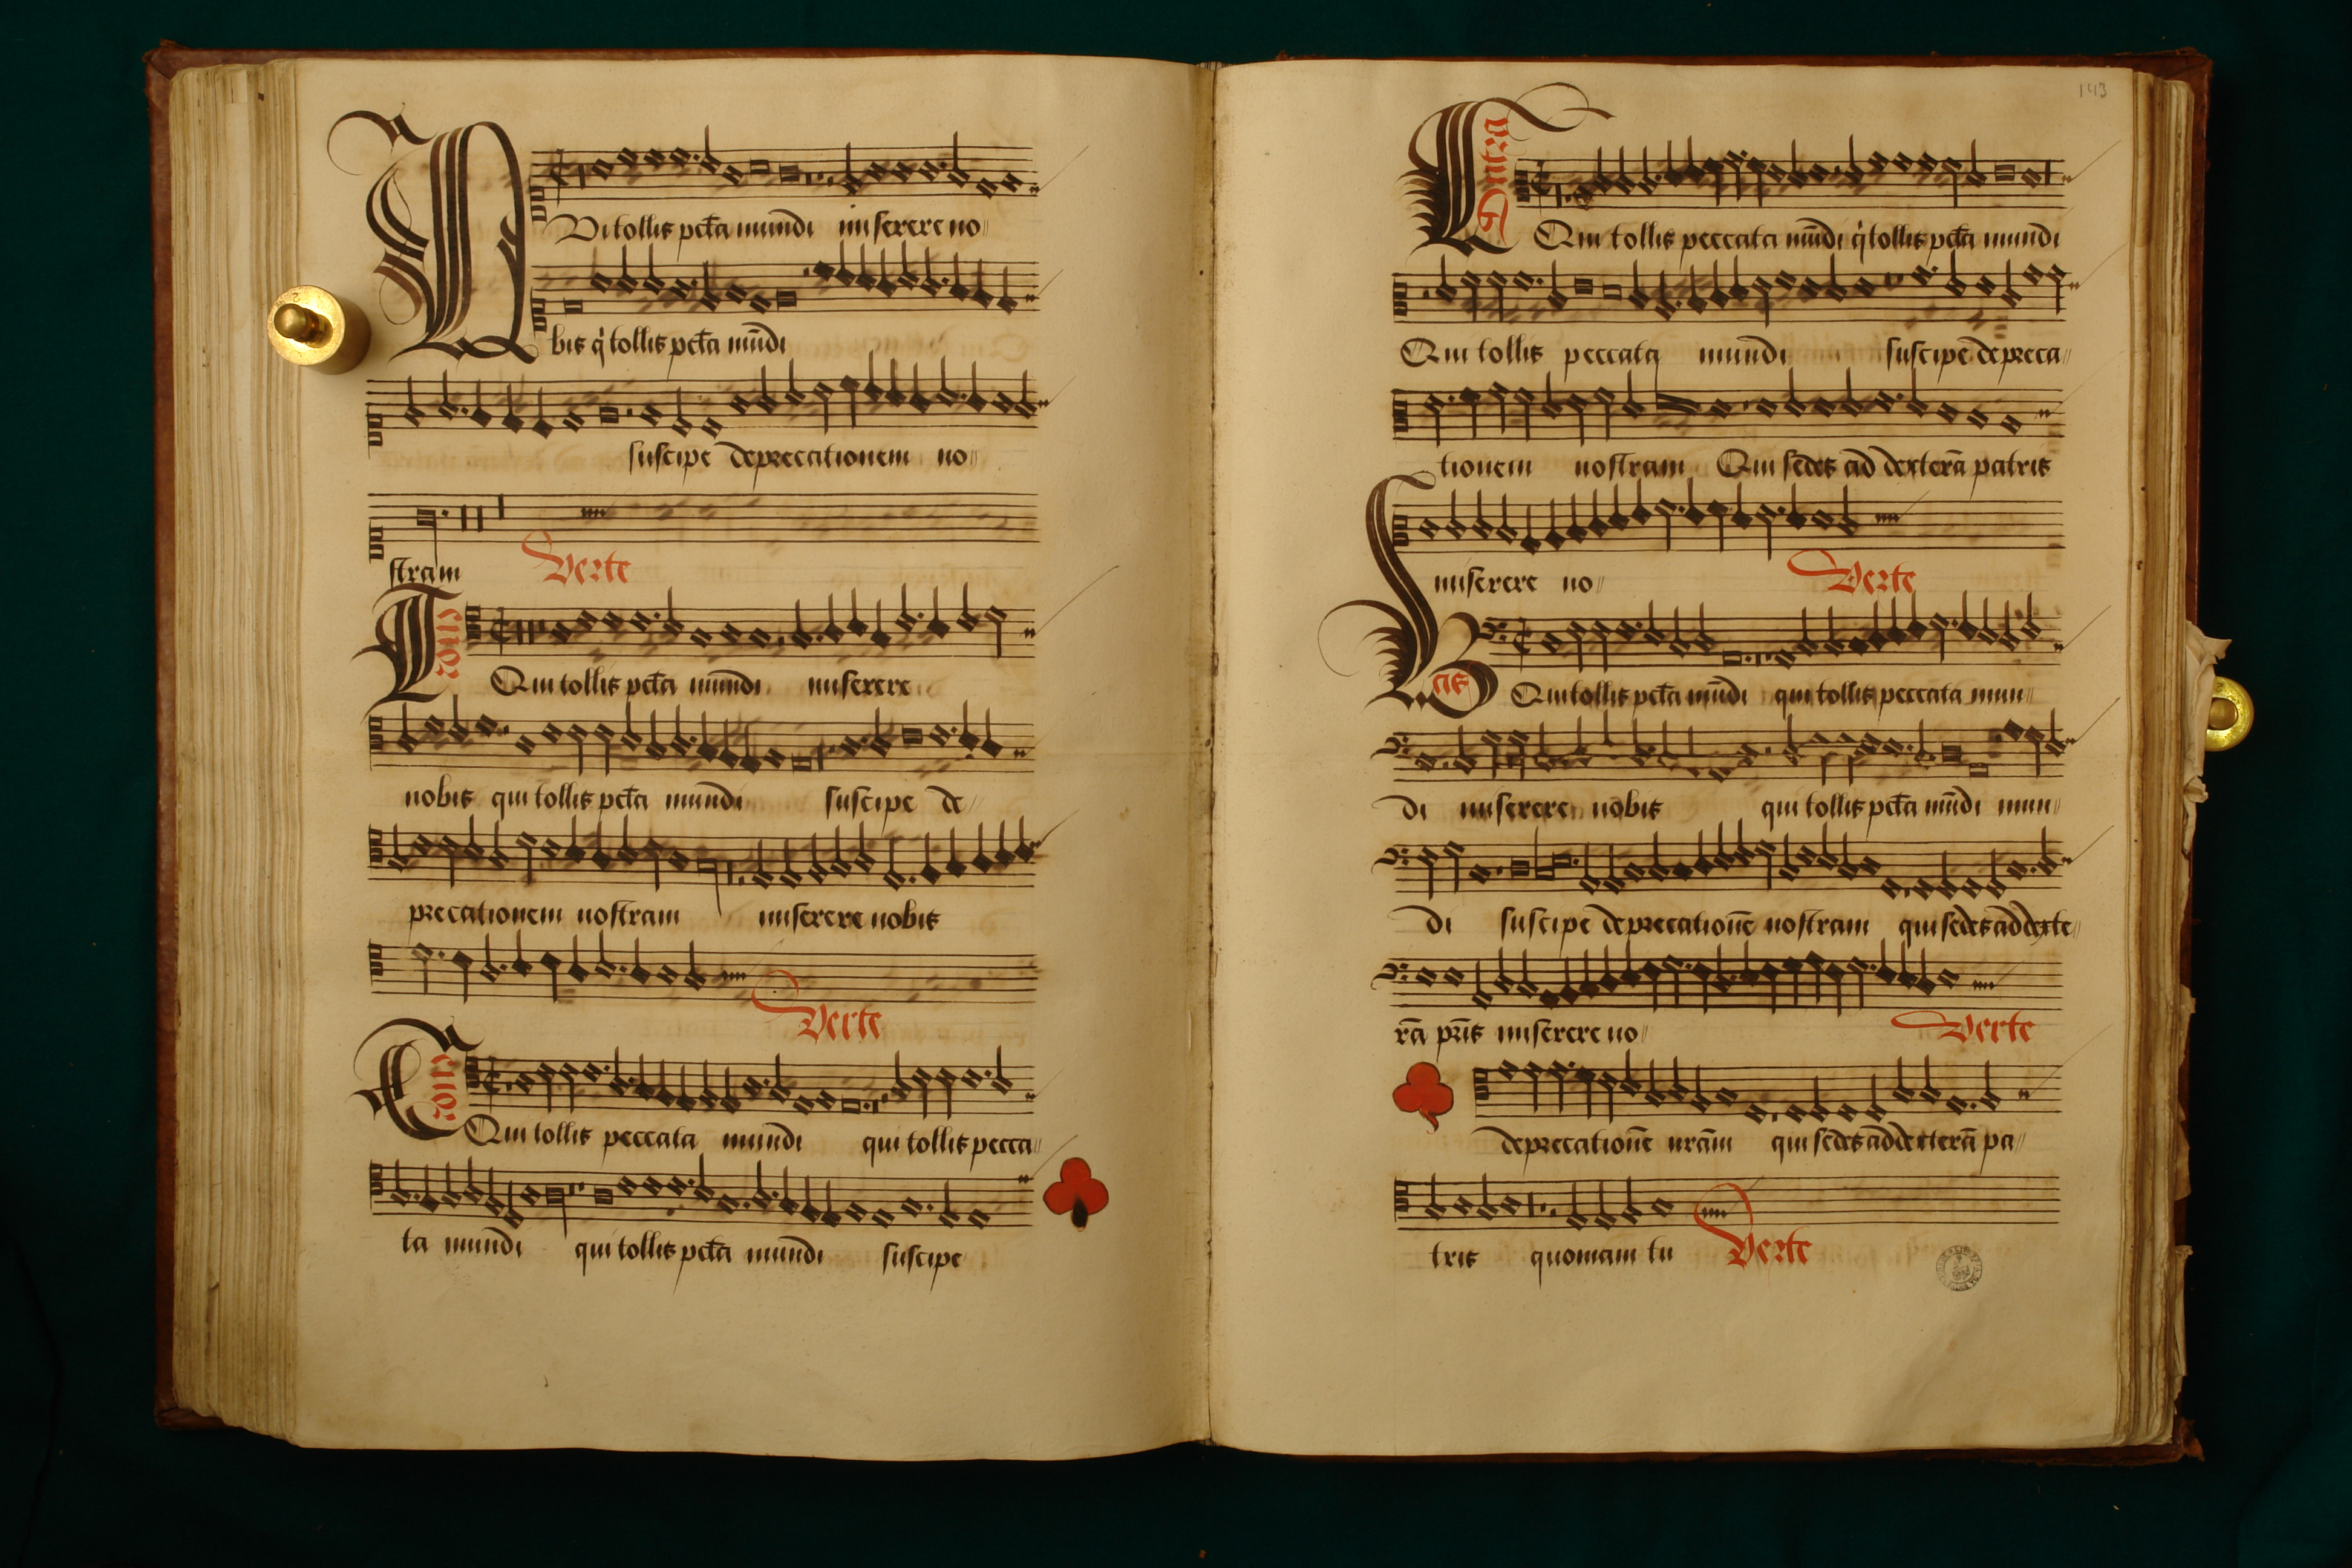 Qui tollis pctā mundi miserere no
bis q tollis pctā mūdi
suscipe deprecationem no
stram
Verte
Qui tollis pctā mūndi miserere
nobis qui tollis pctā mundi suscipe de
precationem nostram miserere nobis
Verte
Qui tollis peccata mundi qui tollis pecca
ta mundi qui tollis pctā mundi suscipe
143
Qui tollis peccata mūdi q tollis pctā mundi
Qui tollis peccata mundi suscipe depreca
tionem nostram Qui sedes ad dexterā patris
miserere no
Verte
Bas
Qui tollis pctā mūdi qui tollis peccata mun
di miserere nobis qui tollis pctā mūdi mun
di suscipe deprecationē nostram qui sedes ad dexte
rā pris miserere no
Verte
deprecationē nrām qui sedes ad dexterā pa
tris quoniam tu
Verte